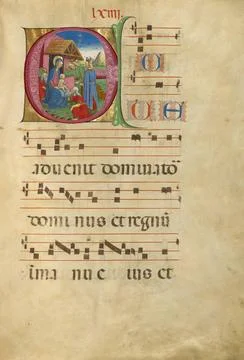 lxiij.
E C
C E
aduenit dominato
dominus et regnū
īma nu e ius et